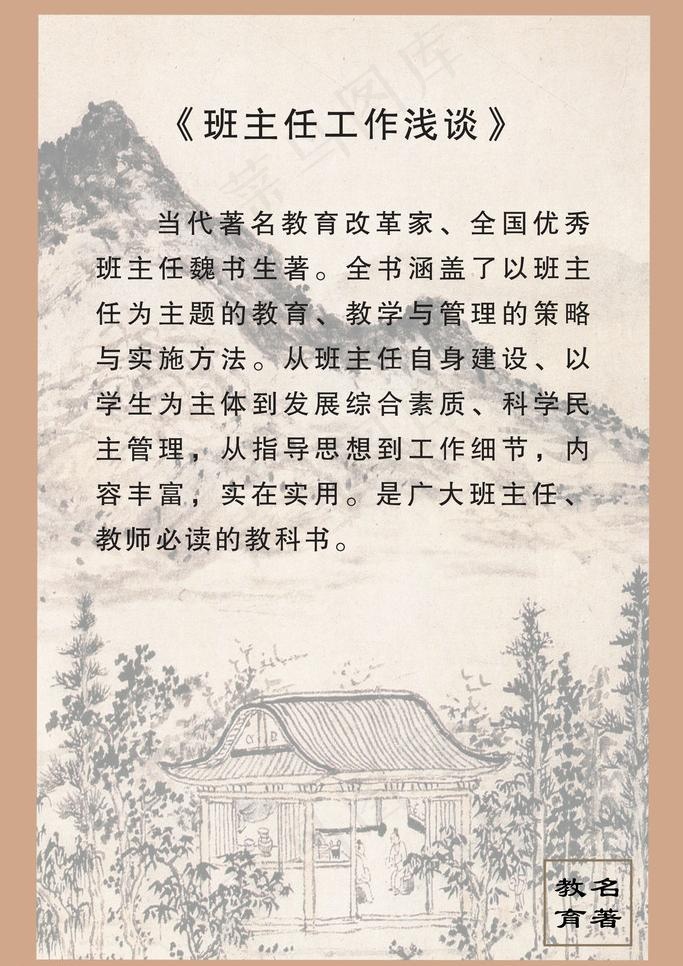 《班主任工作浅谈》
当代著名教育改革家、全国优秀
班主任魏书生著。全书涵盖了以班主
任为主题的教育、教学与管理的策略
与实施方法。从班主任自身建设、以
学生为主体到发展综合素质、科学民
主管理，从指导思想到工作细节，内
容丰富，实在实用。是广大班主任、
教师必读的教科书。
教名
育著
菜鸟图库